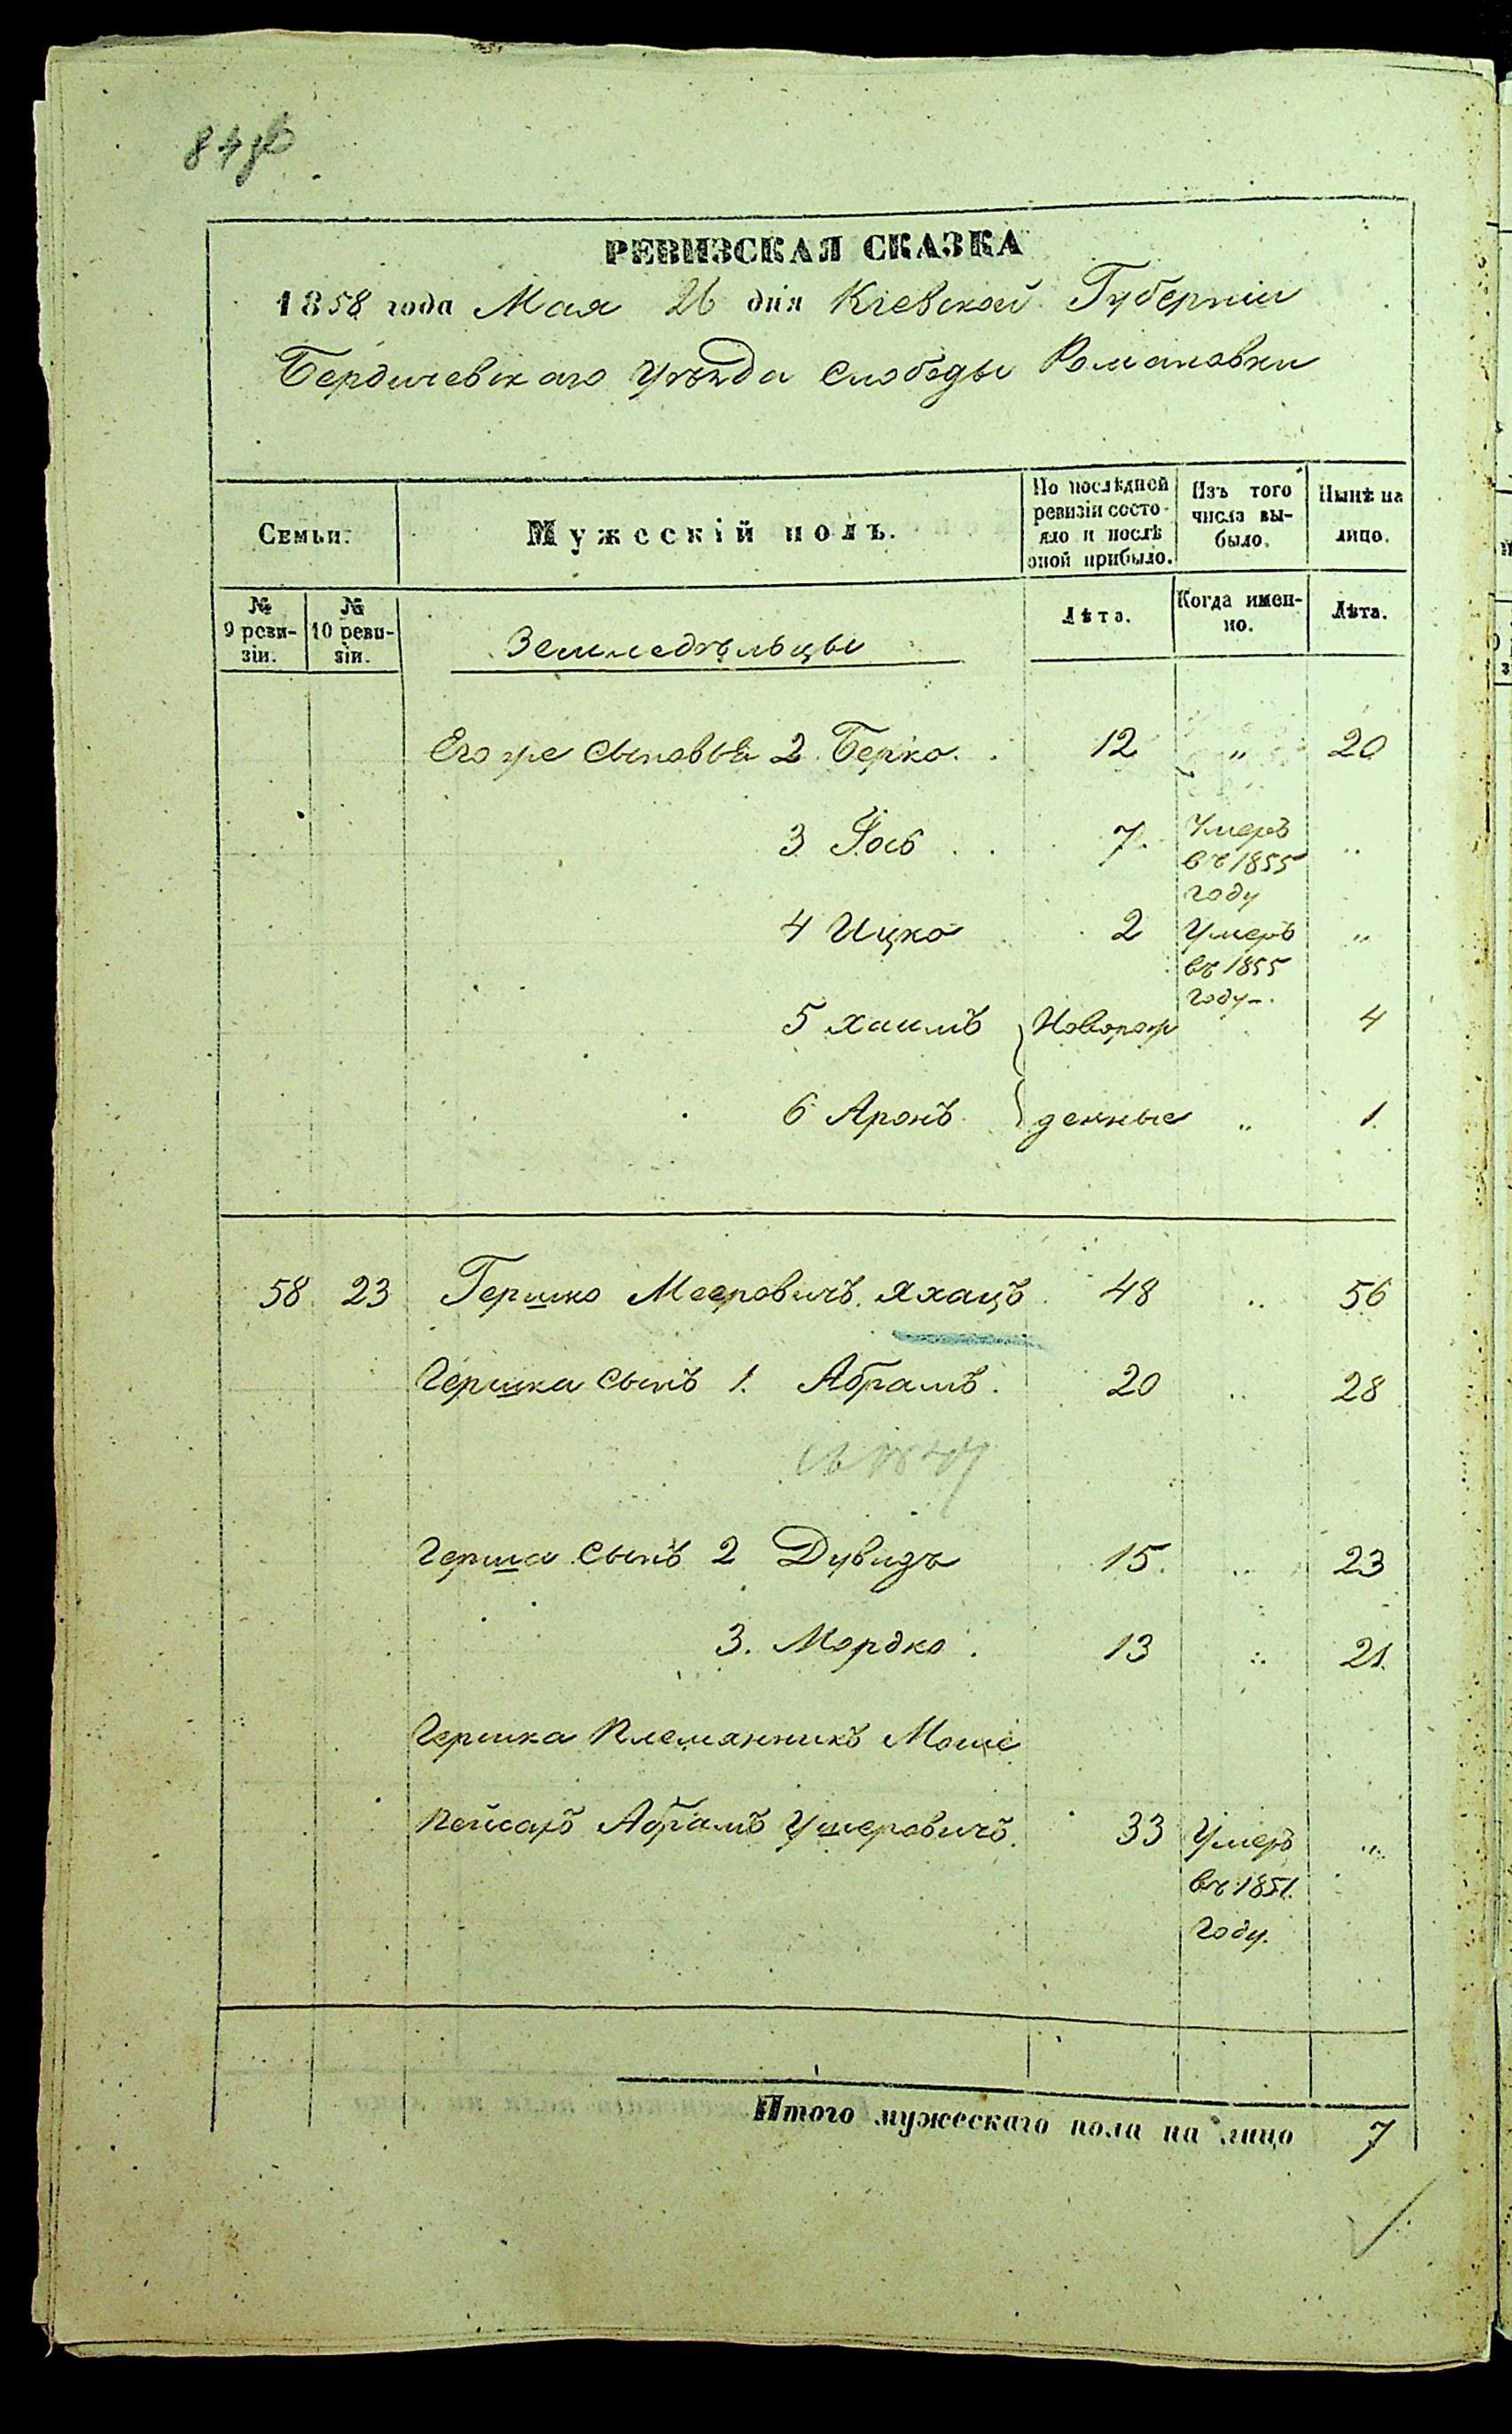 84 об
РЕВИЗСКАЯ СКАЗКА
1858 года Мая 26 дня Кіевской Губерніи
Бердичевскаго Уѣзда Слободы Романовки
Семьи.
Мужескій полъ.
По послѣдней ревизіи состояло и послѣ оной прибыло.
Изъ того числа выбыло.
Нынѣ на лицо.
№ 9 ревизіи.
№ 10 ревизіи.
Земледѣльцы
Лѣта.
Когда именно.
Лѣта.
Его же сыновья 2. Берко. 12 " 20
3 Іось 7. Умеръ въ 1855 году "
4 Ицко 2 Умеръ въ 1855 году "
5 Хаимъ Новорож 4
6 Аронъ денные " 1.
58. 23 Гершко Мееровичъ Яхацъ 48 " 56
Гершка сынъ 1. Абрамъ. 20 " 28
Герша сынъ 2 Дувидъ 15. " 23
3. Мордко. 13 " 21.
Гершка Племянникъ Моше
Пейсахъ Абрамъ Ушеровичъ. 33 Умеръ въ 1851. году. "
Итого мужескаго пола на лицо 7